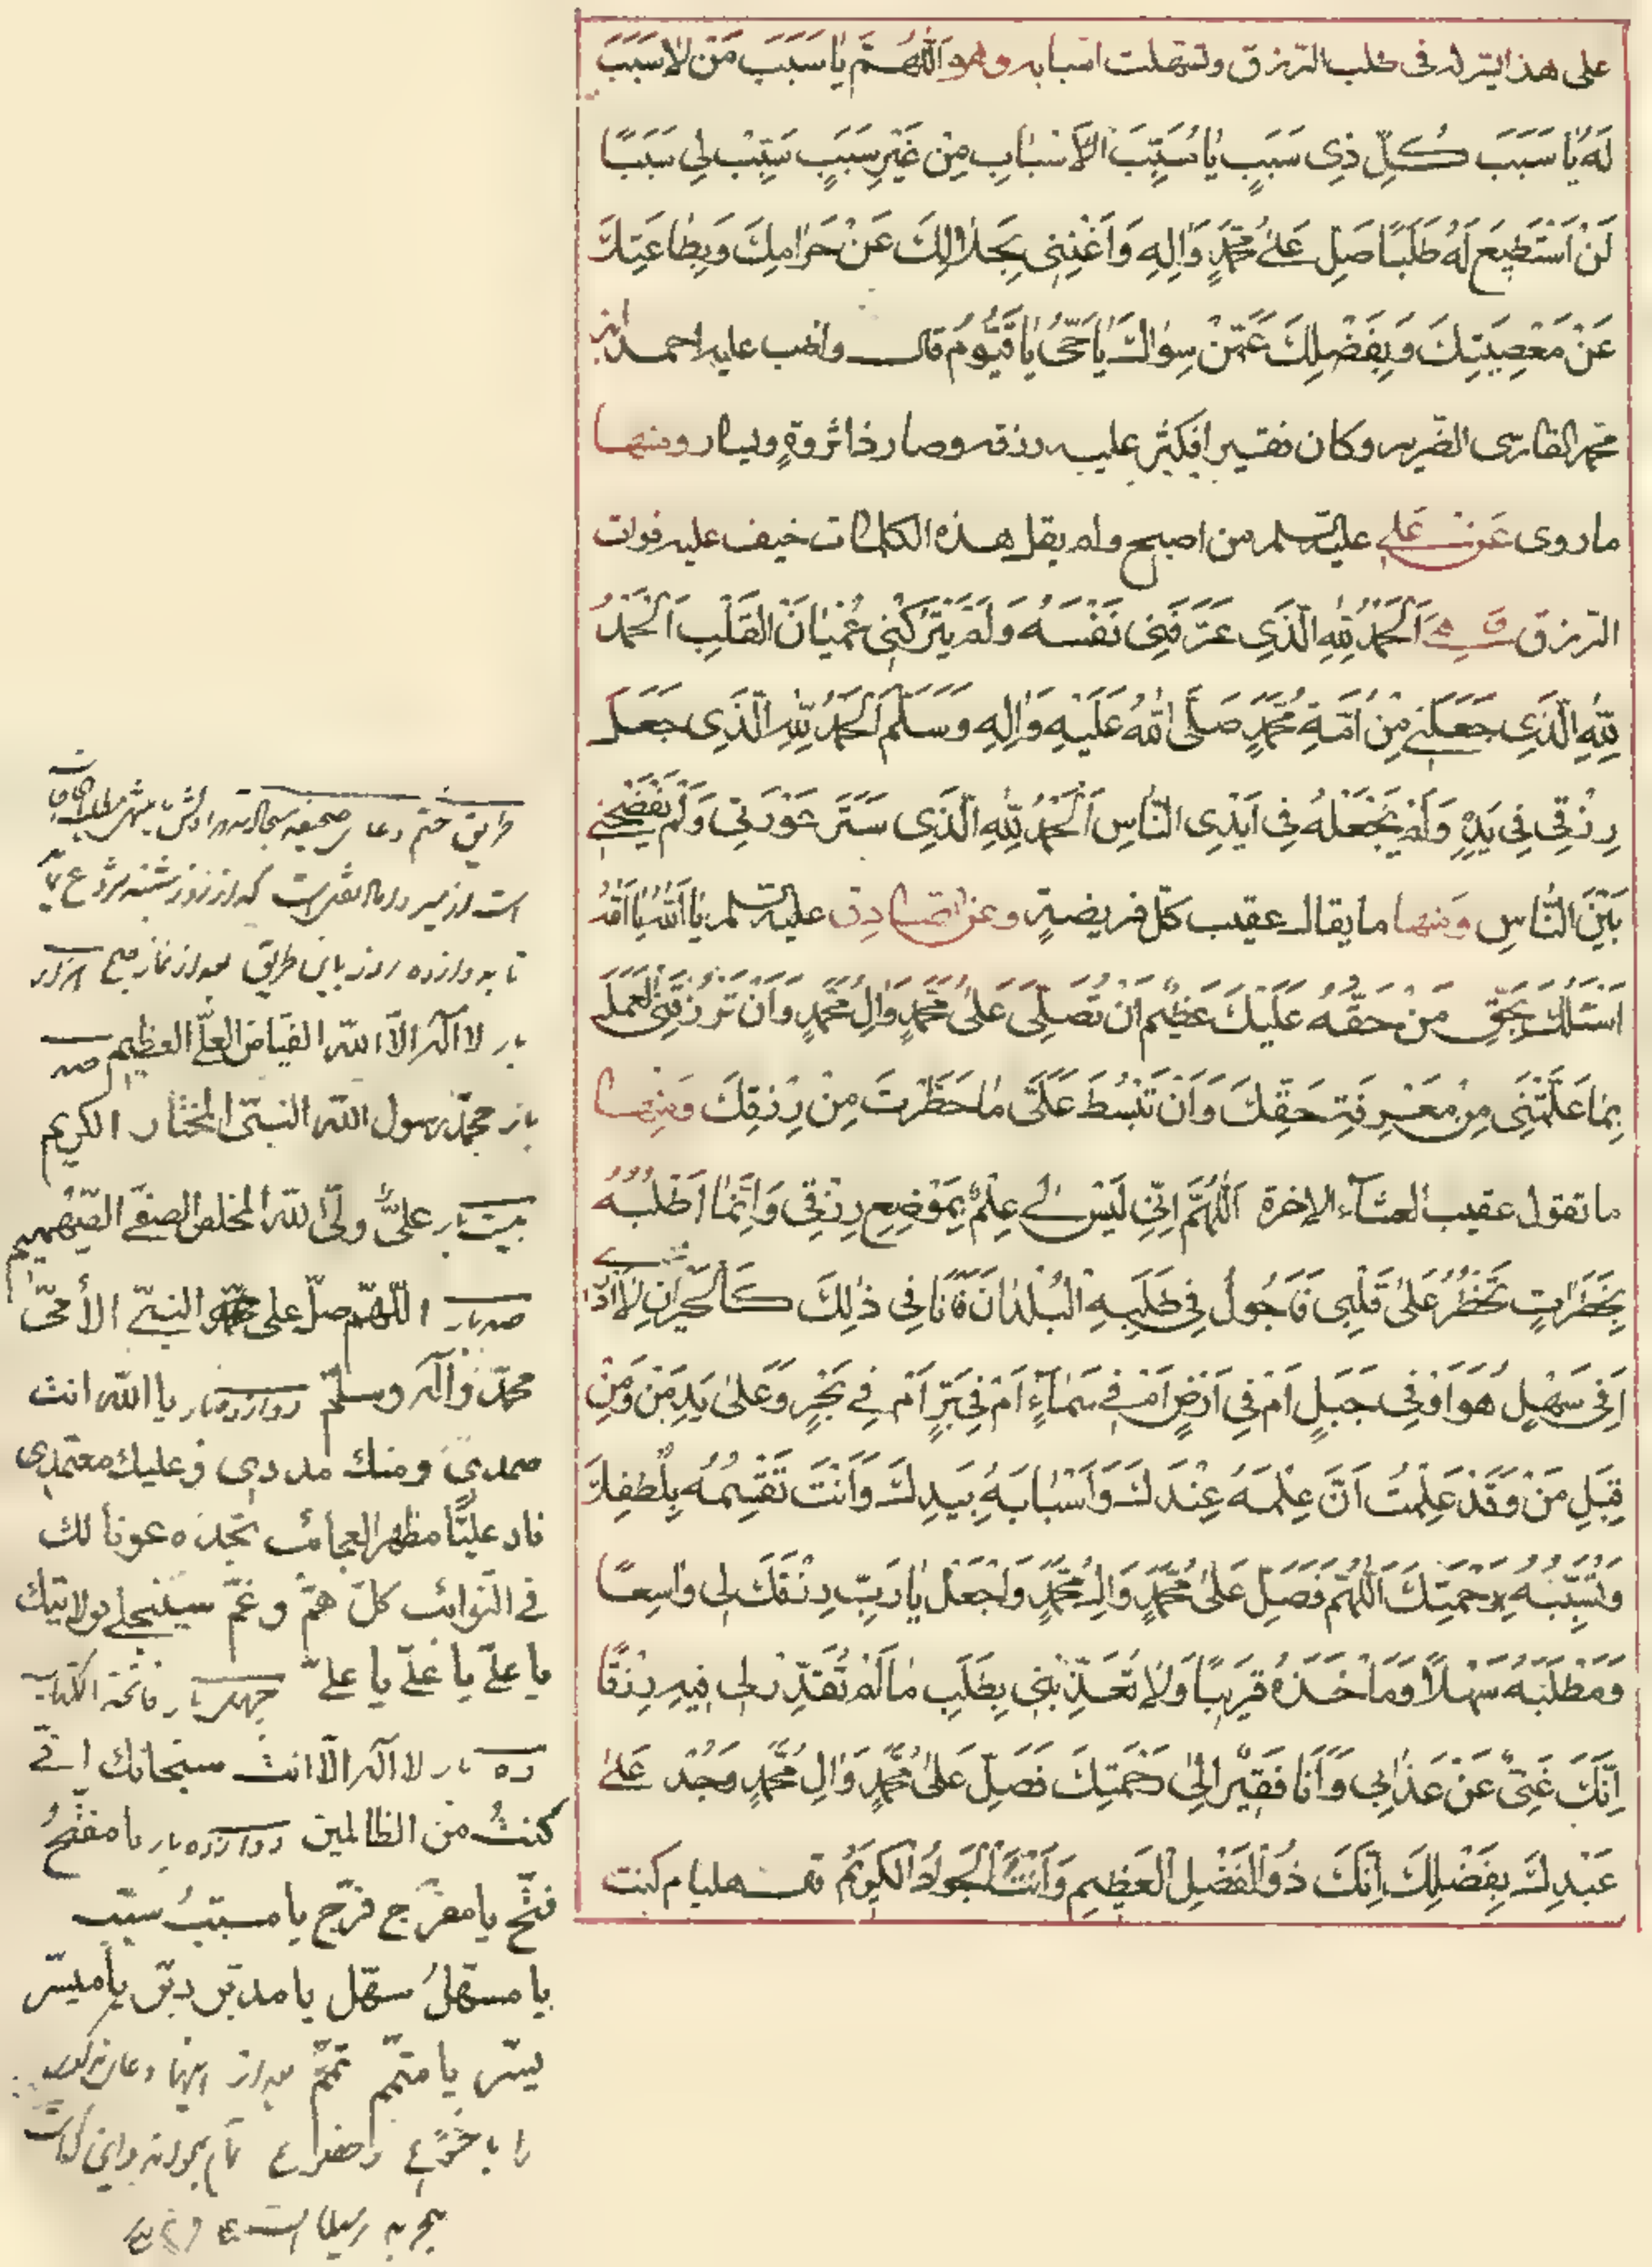 على هذا يتسر له فى طلب الرزق وتسهلت اسبابه وهو اَللّٰهُمَّ يٰا سَبَبَ مَنْ لاٰ سَبَبَ
لَهُ يٰا سَبَبَ كُلِّ ذِى سَبَبٍ يٰا مُسَبِّبَ الْاَسْبٰابِ مِنْ غَيْرِ سَبَبٍ سَبِّبْ لِى سَبَبًا
لَنْ اَسْتَطِيعَ لَهُ طَلَبًا صَلِّ عَلىٰ مُحَمَّدٍ وَاٰلِهِ وَاَغْنِنِى بِحَلاٰلِكَ عَنْ حَرٰامِكَ وَبِطٰاعَتِكَ
عَنْ مَعْصِيَتِكَ وَبِفَضْلِكَ عَمَّنْ سِوٰاكَ يٰا حَىُّ يٰا قَيُّومُ قال واظب عليه احمد ابن
محمد القارى الضرير وكان فقيرا فكثر عليه رزقه وصار ذا ثروةٍ ويسار ومنها
ما روى عَن عَلى عليه السلم من اصبح ولم يقل هذه الكلمات خيف عليه فوات
الرزق وهى اَلْحَمْدُ لِلّٰهِ الَّذِى عَرَّفَنِى نَفْسَهُ وَلَمْ يَتْرُكْنِى عُمْيٰانَ الْقَلْبِ اَلْحَمْدُ
لِلّٰهِ الَّذِى جَعَلَنِى مِنْ اُمَّةِ مُحَمَّدٍ صَلَّى اللّٰهُ عَلَيْهِ وَاٰلِهِ وَسَلَّمَ اَلْحَمْدُ لِلّٰهِ الَّذِى جَعَلَ
رِزْقِى فِى يَدِهِ وَلَمْ يَجْعَلْهُ فِى اَيْدِى النّٰاسِ اَلْحَمْدُ لِلّٰهِ الَّذِى سَتَرَ عَوْرَتِى وَلَمْ يَفْضَحْنِى
بَيْنَ النّٰاسِ وَمنها ما يقال عقيب كل فريضةٍ وعن الصادق عليه السلم يٰا اَللّٰهُ يٰا اَللّٰهُ
اَسْئَلُكَ بِحَقِّ مَنْ حَقُّهُ عَلَيْكَ عَظِيمٌ اَنْ تُصَلِّىَ عَلىٰ مُحَمَّدٍ وَاٰلِ مُحَمَّدٍ وَاَنْ تَرْزُقَنِى الْعَمَلَ
بِمٰا عَلَّمْتَنِى مِنْ مَعْرِفَةِ حَقِّكَ وَاَنْ تَبْسُطَ عَلَىَّ مٰا حَظَرْتَ مِنْ رِزْقِكَ وَمنها
ما تقول عقيب العشآء الاخرة اَللّٰهُمَّ اِنِّى لَيْسَ لِى عِلْمٌ بِمَوْضِعِ رِزْقِى وَاِنَّمٰا اَطْلُبُهُ
بِخَطَرٰاتٍ تَخْطُرُ عَلىٰ قَلْبِى فَاَجُولُ فِى طَلَبِهِ الْبُلْدٰانَ فَاَنَا فِى ذٰلِكَ كَالْحَيْرٰانِ لاٰ اَدْرِى
اَفِى سَهْلٍ هُوَ اَوْ فِى جَبَلٍ اَمْ فِى اَرْضٍ اَمْ فِى سَمٰآءٍ اَمْ فِى بَرٍّ اَمْ فِى بَحْرٍ وَعَلىٰ يَدِ مَنْ وَمِنْ
قِبَلِ مَنْ وَقَدْ عَلِمْتُ اَنَّ عِلْمَهُ عِنْدَكَ وَاَسْبٰابَهُ بِيَدِكَ وَاَنْتَ تَقْسِمُهُ بِلُطْفِكَ
وَتُسَبِّبُهُ بِرَحْمَتِكَ اَللّٰهُمَّ فَصَلِّ عَلىٰ مُحَمَّدٍ وَاٰلِ مُحَمَّدٍ وَاجْعَلْ يٰا رَبِّ رِزْقَكَ لِى وٰاسِعًا
وَمَطْلَبَهُ سَهْلاً وَمَاْخَذَهُ قَرِيبًا وَلاٰ تُعَذِّبْنِى بِطَلَبِ مٰا لَمْ تُقَدِّرْ لِى فِيهِ رِزْقًا
اِنَّكَ غَنِىٌّ عَنْ عَذٰابِى وَاَنَا فَقِيرٌ اِلىٰ رَحْمَتِكَ فَصَلِّ عَلىٰ مُحَمَّدٍ وَاٰلِ مُحَمَّدٍ وَجُدْ عَلىٰ
عَبْدِكَ بِفَضْلِكَ اِنَّكَ ذُو الْفَضْلِ الْعَظِيمِ وَاَنْتَ الْجَوٰادُ الْكَرِيمُ
طريق ختم دعاى صحيفه سجاديه
است از مير داماد كه از روز شنبه شروع
تا به دوازده روز باين طريق بعد از نماز صبح
بار لا اله الا الله الفياض العلى العظيم صد
بار محمد رسول الله النبى المختار الكريم
بيست بار علىٌّ ولى الله المخلص الصفى
صد بار اللّهم صلّ على محمد النبىّ الأمىّ
محمد وآله وسلّم دوازده بار يا الله انت
صمدى ومنك مددى وعليك معتمدى
ناد عليًّا مظهر العجائب تجده عونا لك
فى النوائب كلّ همّ وغمّ سينجلى بولايتك
يا علىّ يا علىّ يا علىّ چهل بار فاتحة الكتاب
ده بار لا اله الّا انت سبحانك انّى
كنتُ من الظالمين دوازده بار يا مفتّحُ
فتّح يا مفرّج فرّج يا مسبّبُ سبّب
يا مسهّلُ سهّل يا مدبّر دبّر يا ميسّر
يسّر يا متمّم تمّم بعد از اينها دعاى مذكور
را با خضوع تمام بخواند واين
بتجربه رسيده است